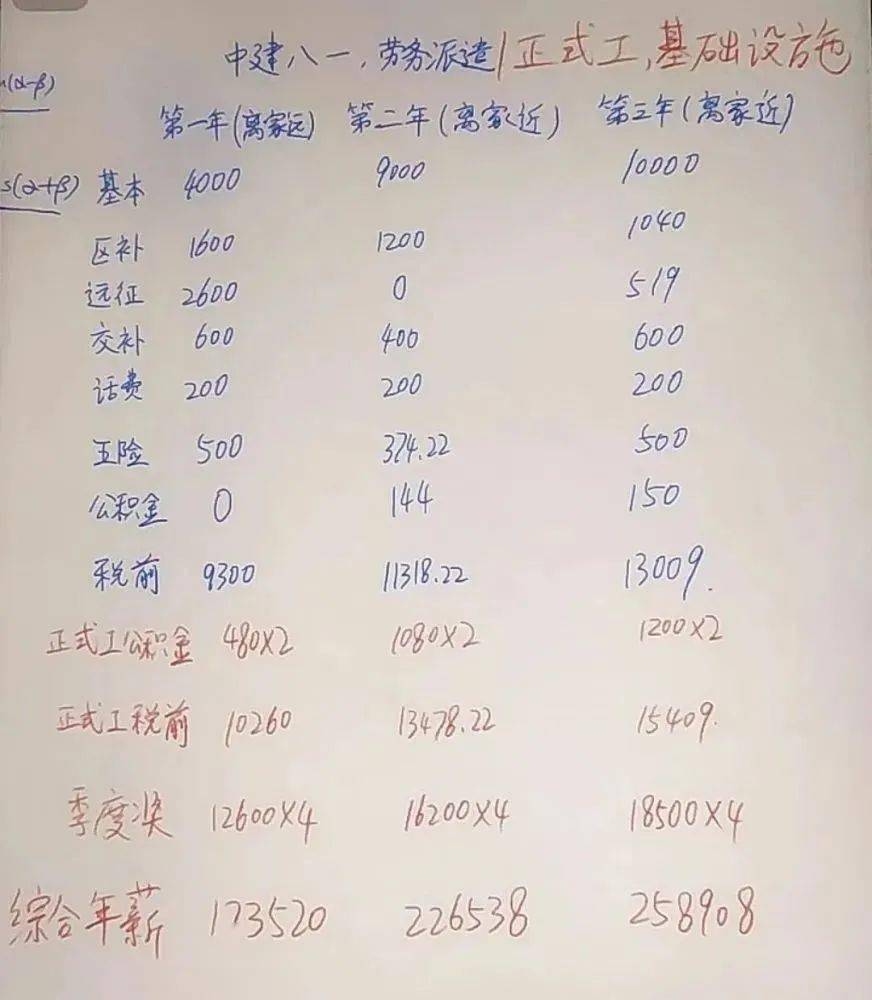 中建八一,劳务派遣/正式工,基础设施
(α-β)
第一年(离家远) 第二年(离家近) 第三年(离家近)
s(α+β)
基本 4000 9000 10000
区补 1600 1200 1040
远征 2600 0 519
交补 600 400 600
话费 200 200 200
五险 500 374.22 500
公积金 0 144 150
税前 9300 11318.22 13009.
正式工公积金 480×2 1080×2 1200×2
正式工税前 10260 13478.22 15409.
季度奖 12600×4 16200×4 18500×4
综合年薪 173520 226538 258908